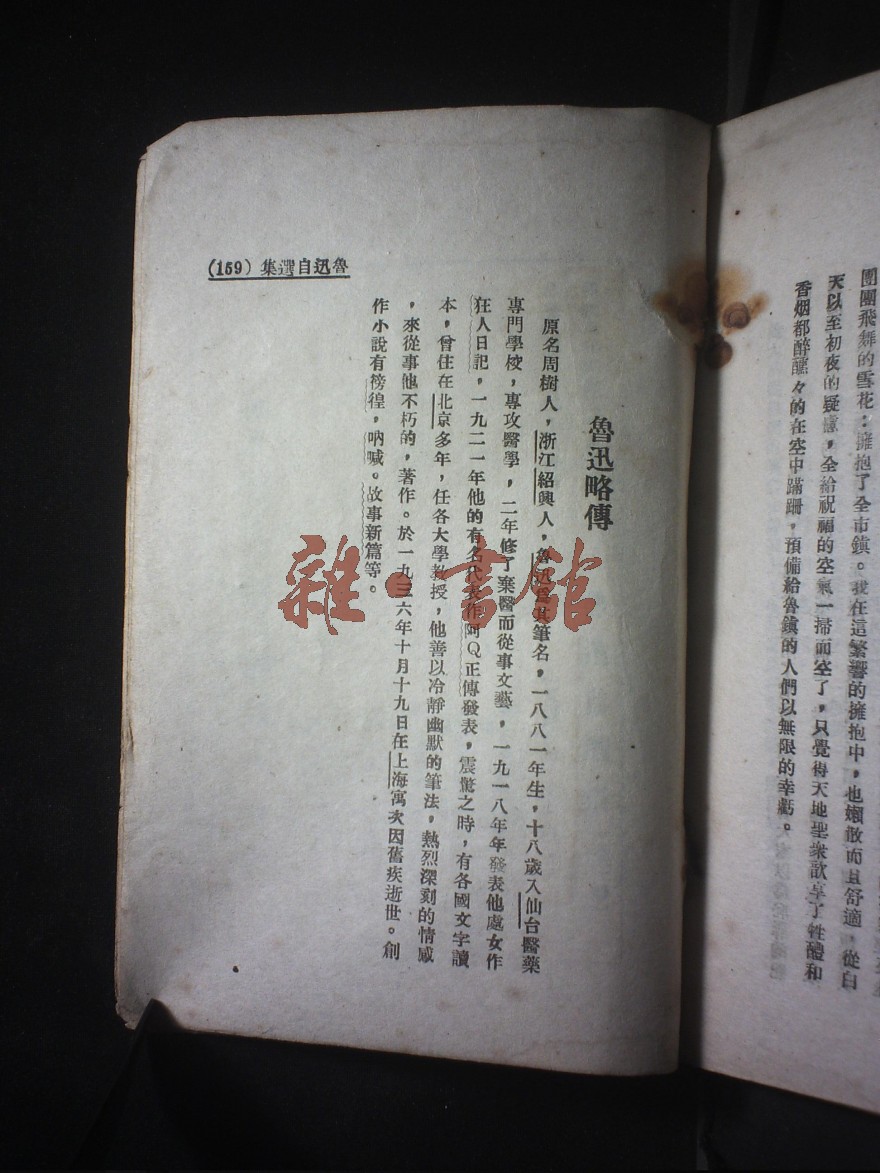 團團飛舞的雪花，擁抱了全市鎮。我在這繁響的擁抱中，也嬾散而且舒適，從白
天以至初夜的疑慮，全給祝福的空氣一掃而空了，只覺得天地聖衆歆享了牲醴和
香烟都醉醺々的在空中蹣跚，預備給魯鎮的人們以無限的幸虧。
魯迅略傳
原名周樹人，浙江紹興人，魯迅爲其筆名，一八八一年生，十八歲入仙台醫藥
專門學校，專攻醫學，二年修了棄醫而從事文藝，一九一八年年發表他處女作
狂人日記，一九二一年他的有名代表作阿Q正傳發表，震驚之時，有各國文字讀
本，曾住在北京多年，任各大學教授，他善以冷靜幽默的筆法，熱烈深刻的情感
，來從事他不朽的，著作。於一九三六年十月十九日在上海寓次因舊疾逝世。創
作小說有徬徨，吶喊。故事新篇等。
魯迅自選集（159）
雜·書館